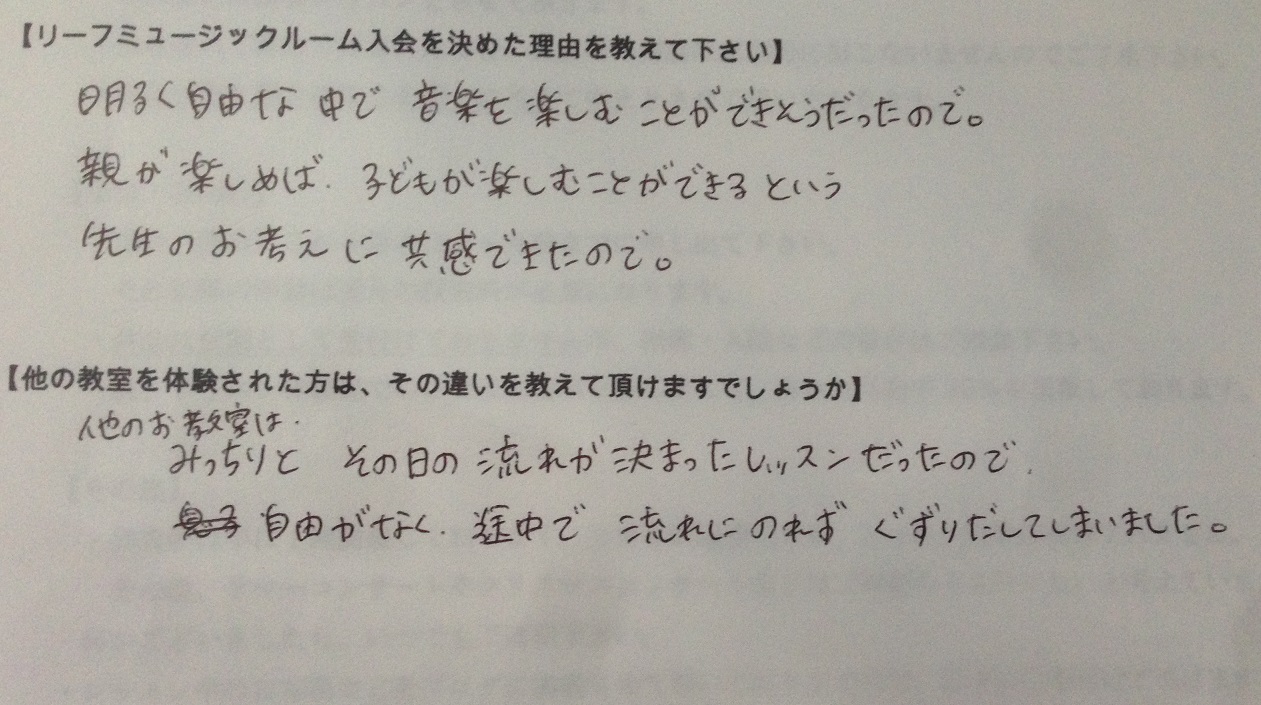 【リーフミュージックルーム入会を決めた理由を教えて下さい】
明るく自由な中で 音楽を楽しむことができそうだったので。
親が楽しめば、子どもが楽しむことができるという
先生のお考えに共感できたので。
【他の教室を体験された方は、その違いを教えて頂けますでしょうか】
他のお教室は、
みっちりと その日の流れが決まったレッスンだったので、
自由がなく、途中で 流れにのれず ぐずりだしてしまいました。